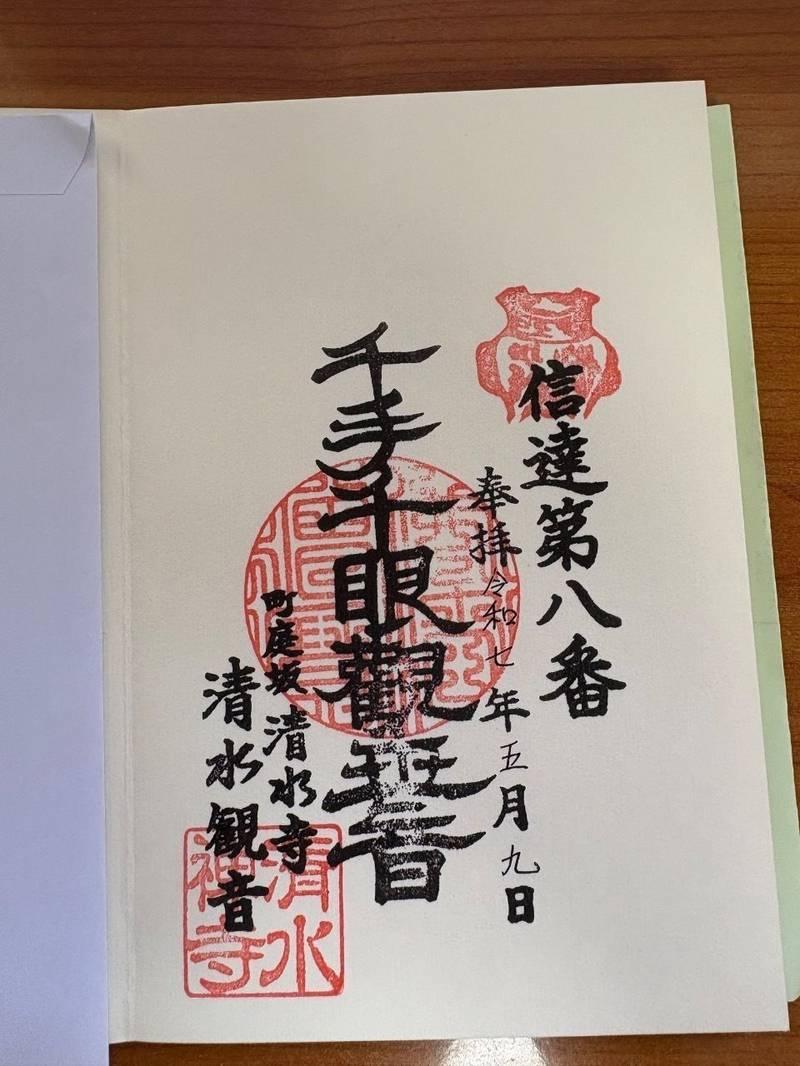 信達第八番
奉拝 令和七年五月九日
千手千眼觀世音
町庭坂 清水寺
清水観音
清水
禅寺